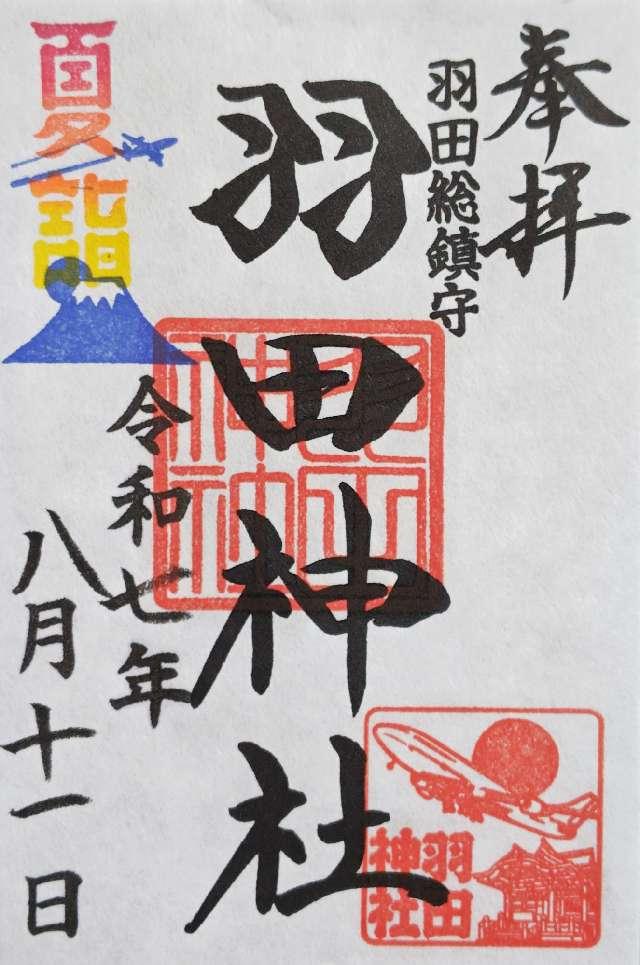 奉拝
羽田総鎮守
羽田神社
令和七年
八月十一日
夏詣
羽田
神社